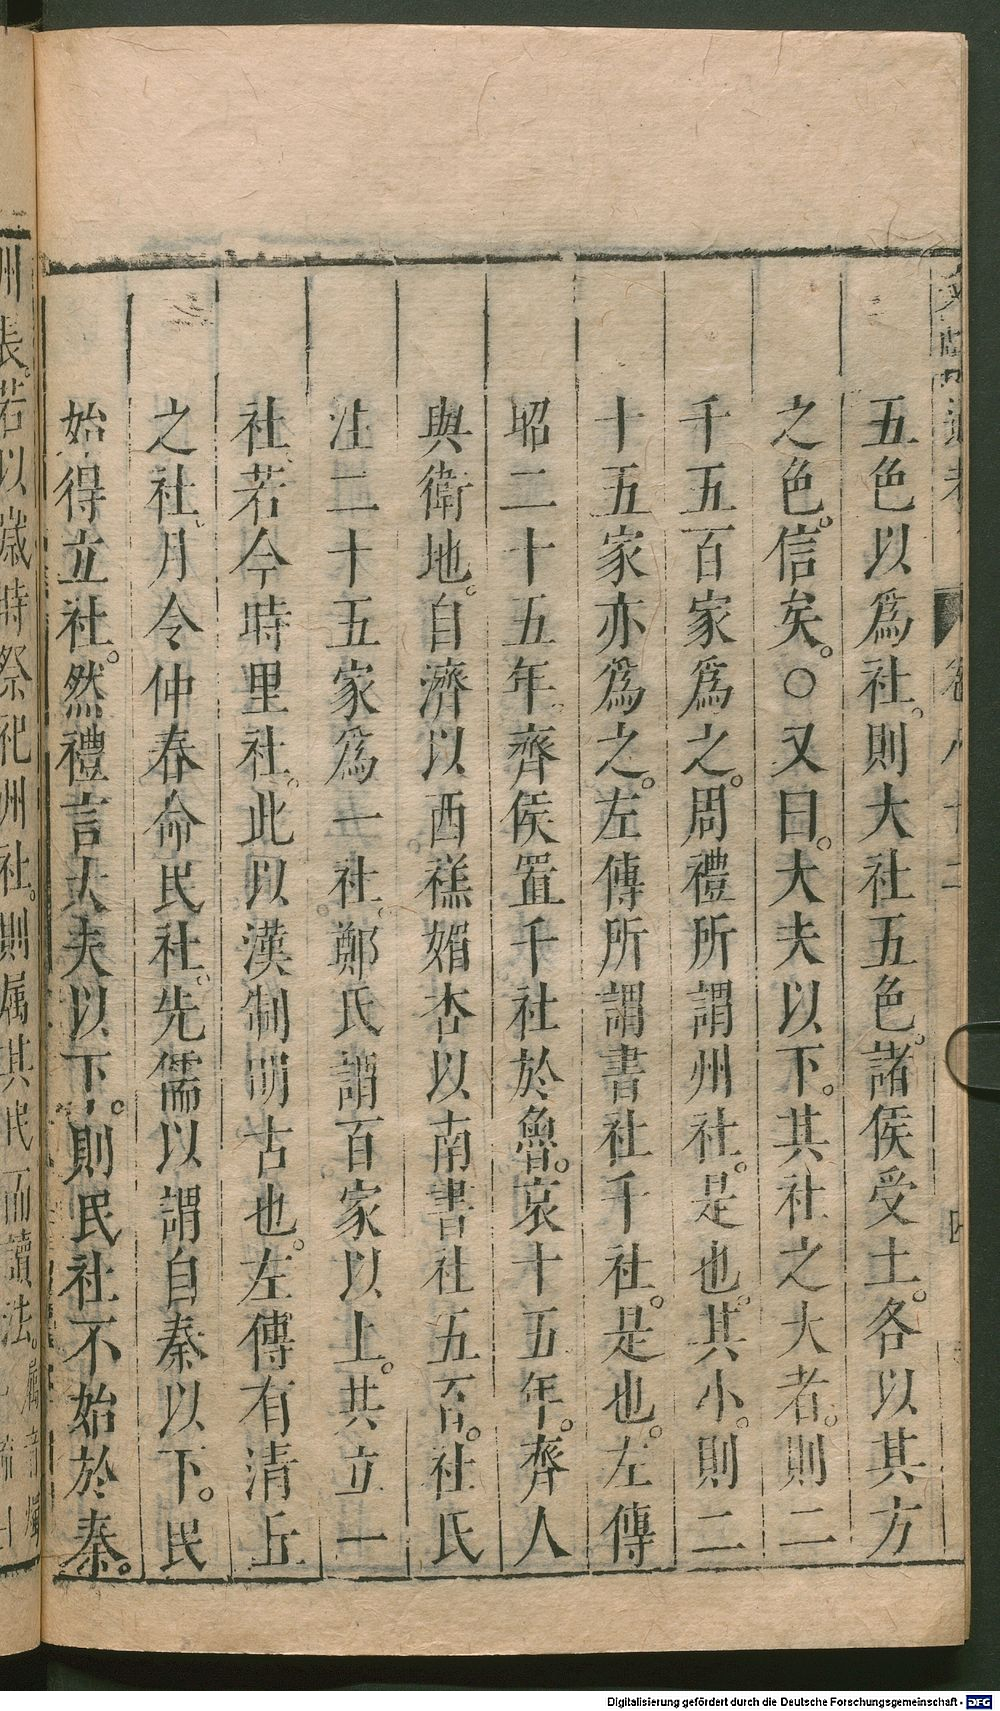 五色以爲社。則大社五色。諸侯受土。各以其方
之色。信矣。○又曰。大夫以下。其社之大者。則二
千五百家爲之。周禮所謂州社。是也。其小。則二
十五家亦爲之。左傳所謂書社千社。是也。左傳
昭二十五年、齊侯置千社於魯。哀十五年。齊人
與衛地。自濟以西禚媚杏以南書社五百。社氏
注二十五家爲一社。鄭氏謂百家以上。共立一
社、若今時里社。此以漢制明古也。左傳有清丘
之社、月令仲春命民社。先儒以謂自秦以下。民
始得立社。然禮言大夫以下。則民社不始於秦。
州長。若以歲時祭祀州社。則属其民而讀法。
Digitalisierung gefördert durch die Deutsche Forschungsgemeinschaft - DFG